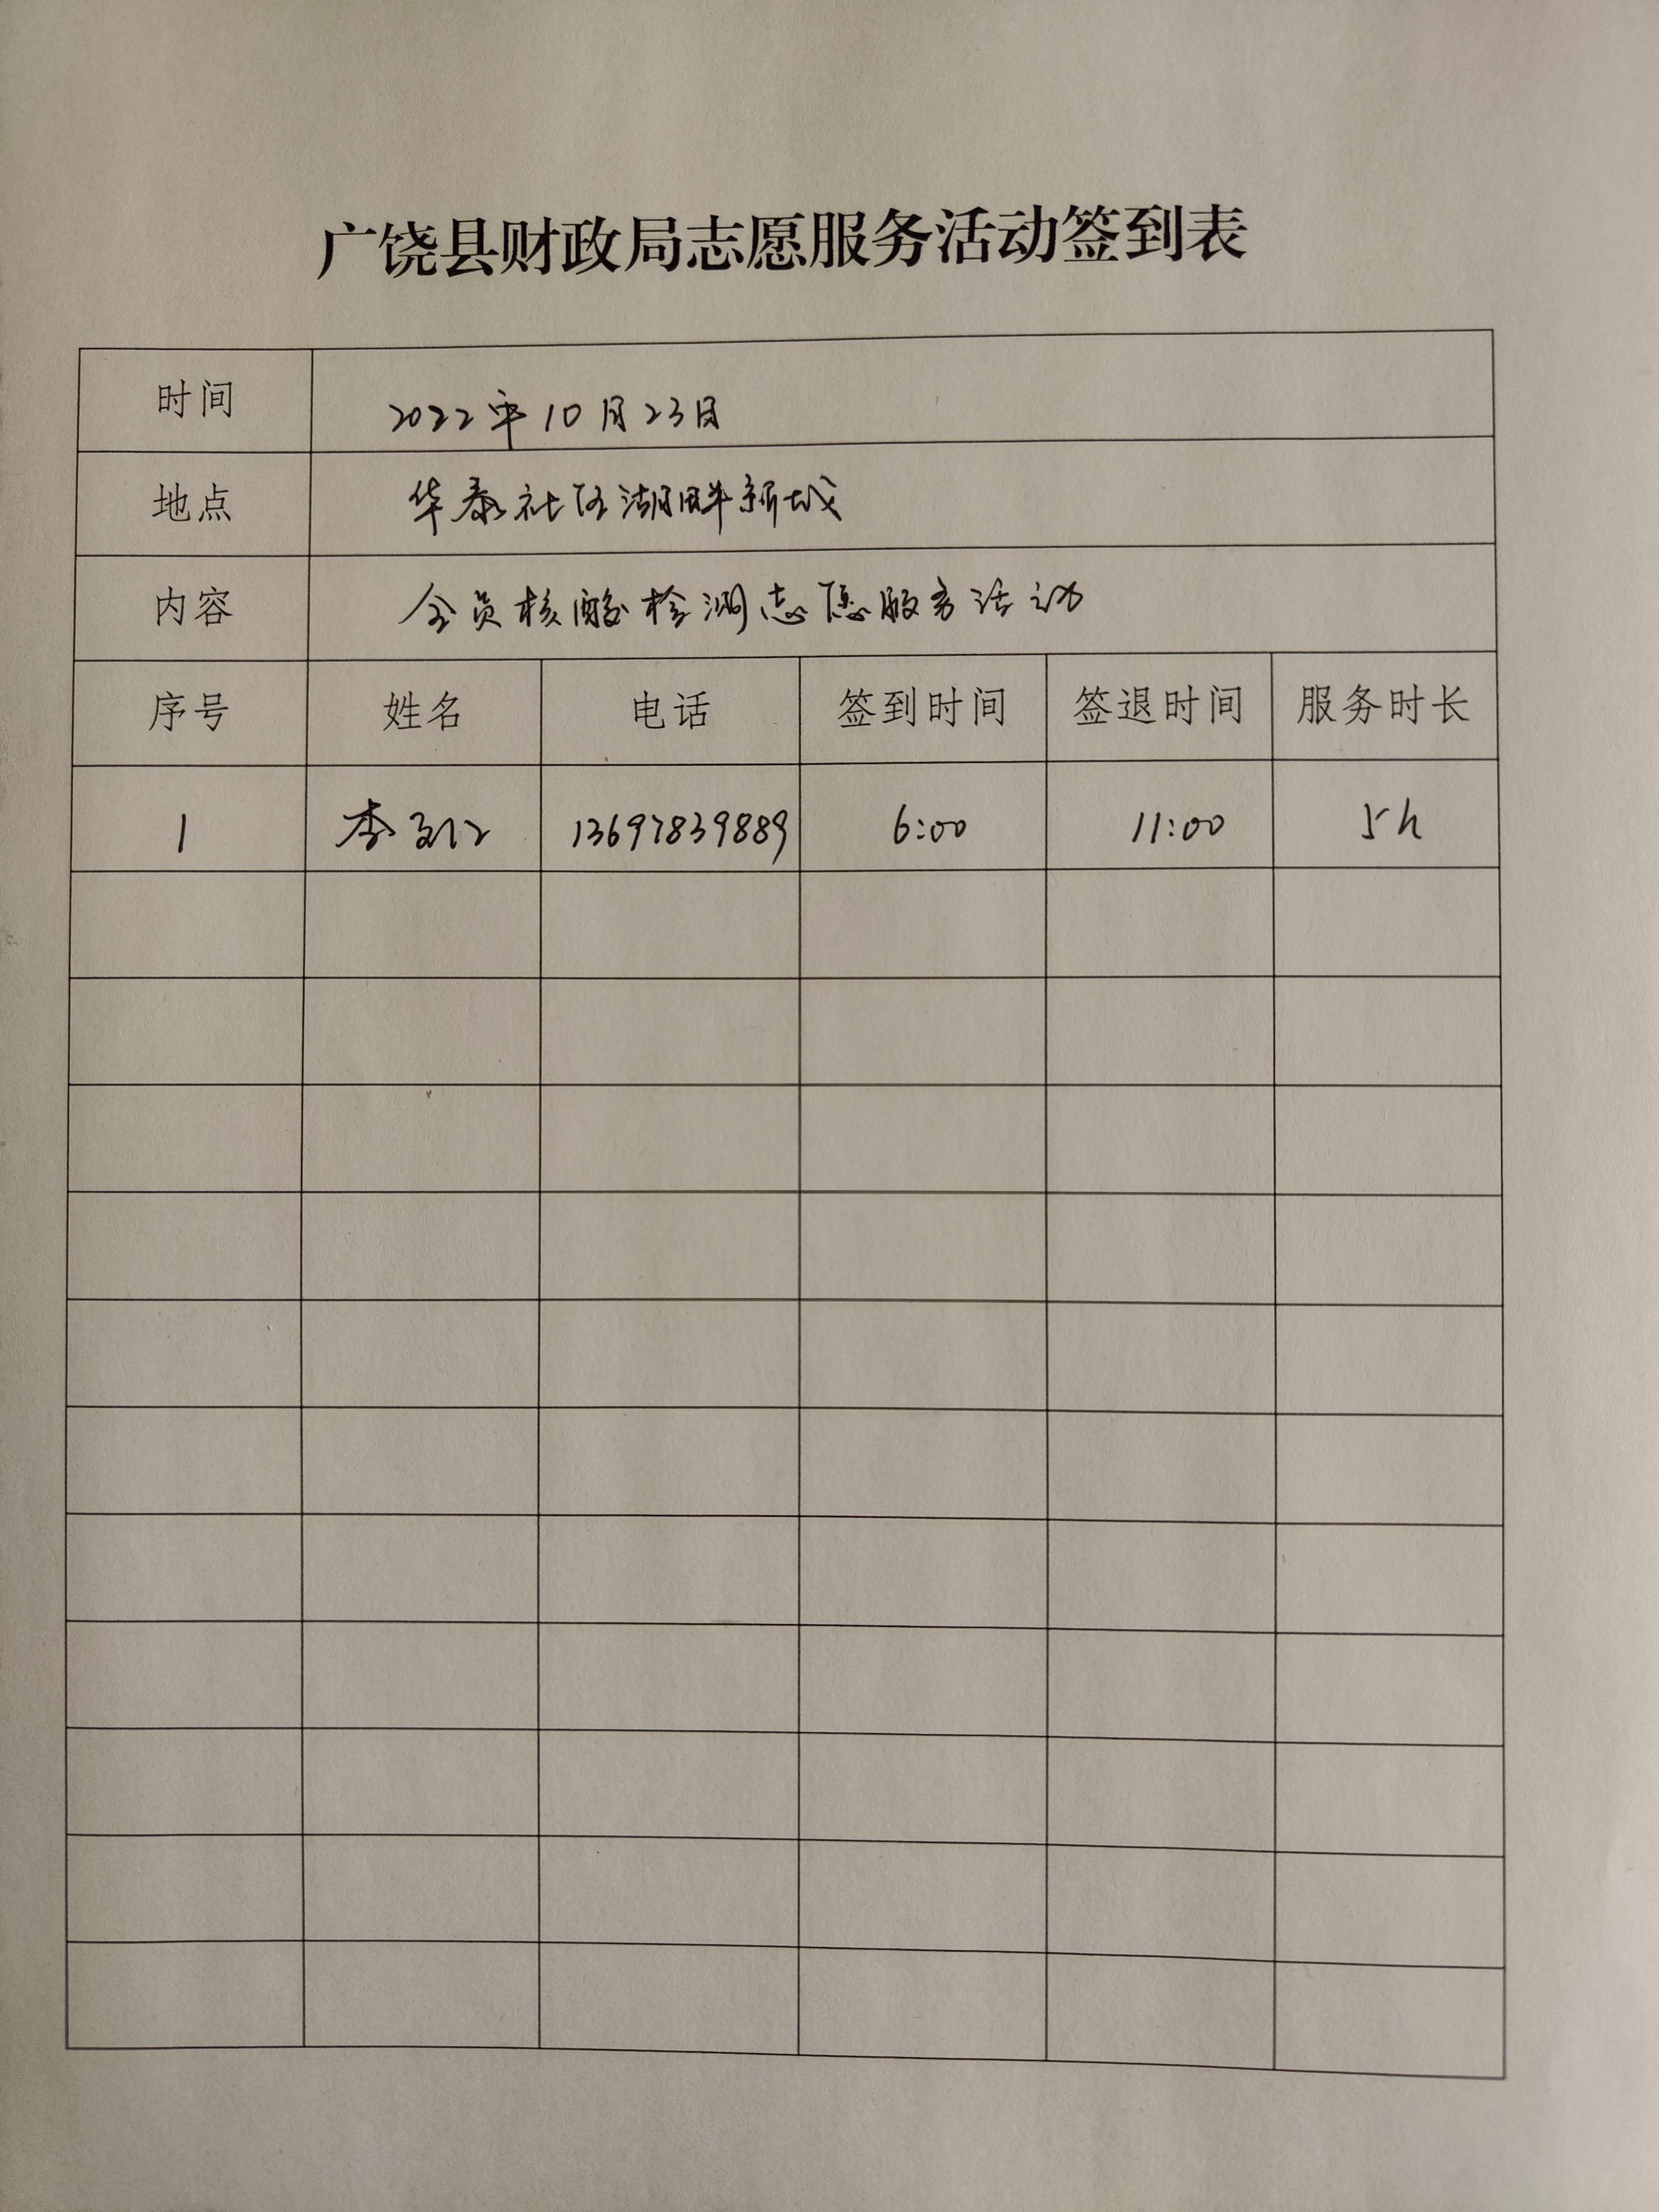 广饶县财政局志愿服务活动签到表
时间 2022年10月23日
地点 华泰社区湖畔新城
内容 全员核酸检测志愿服务活动
序号 姓名 电话 签到时间 签退时间 服务时长
1 李 13697839889 6:00 11:00 5h